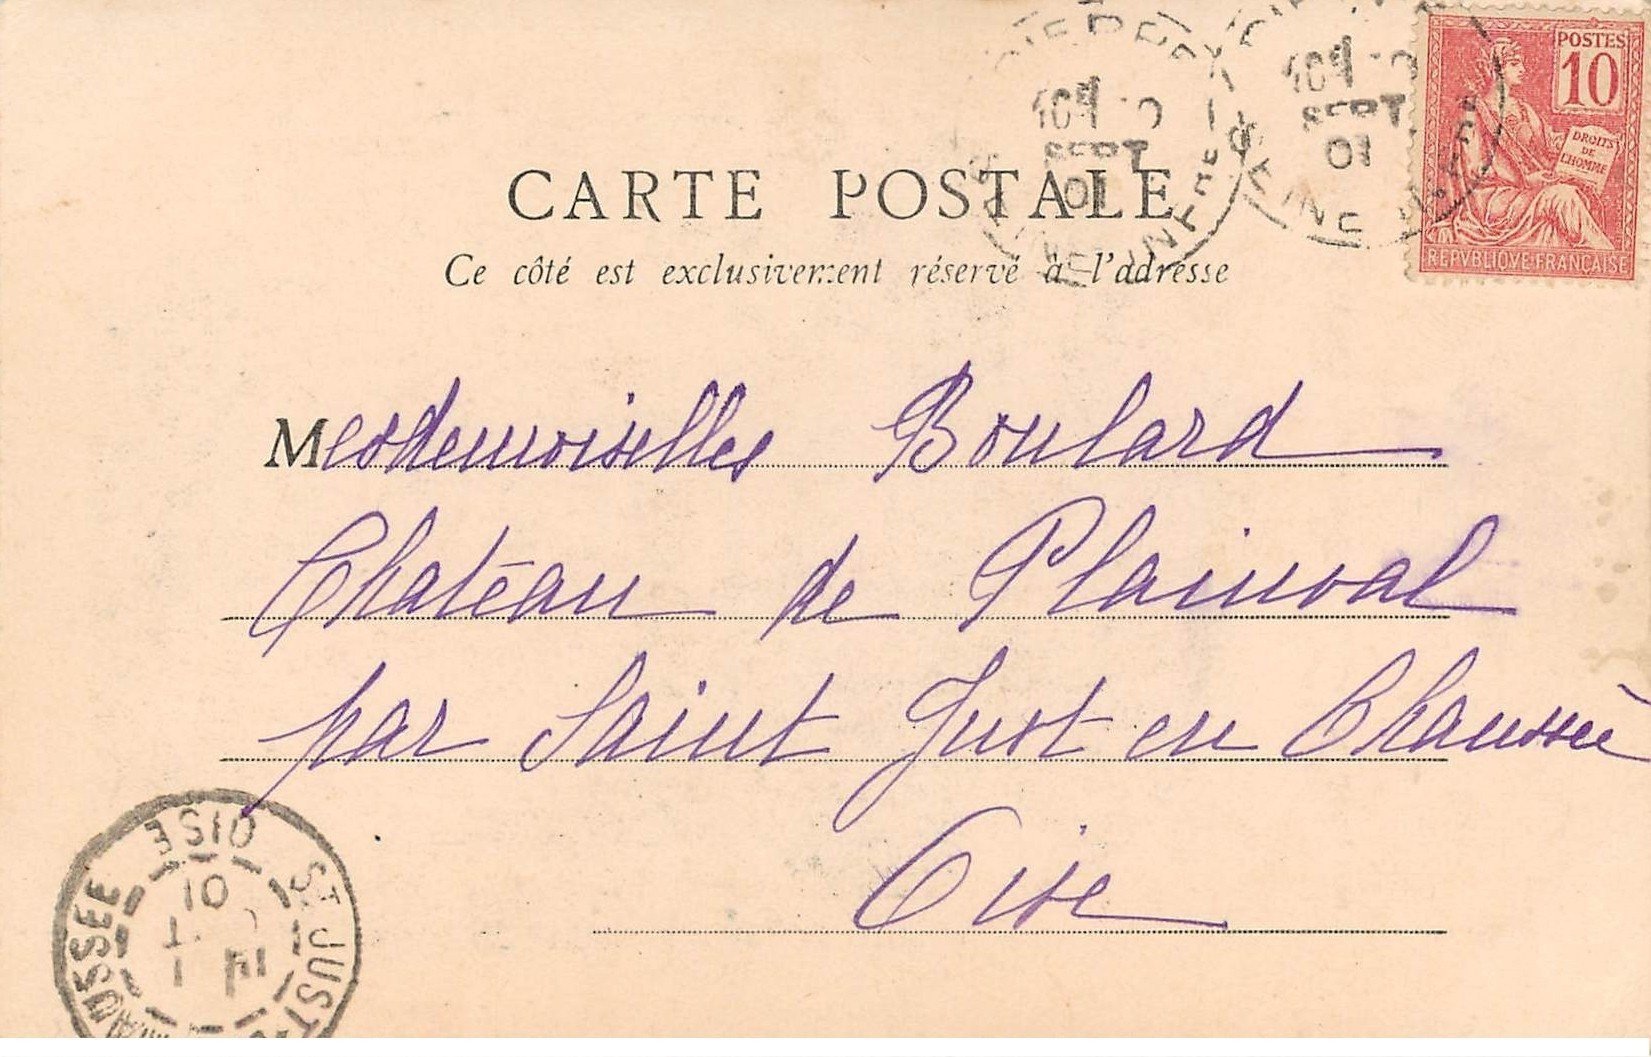 CARTE POSTALE
Ce côté est exclusivement réservé à l'adresse
POSTES
10
DROITS
DE
L'HOMME
REPVBLIQVE FRANÇAISE
SEPT
01
SEPT.
01
Mesdemoiselles Boulard
Château de Plainval
par Saint Just en Chaussée
Oise
ST JUST
OISE
01